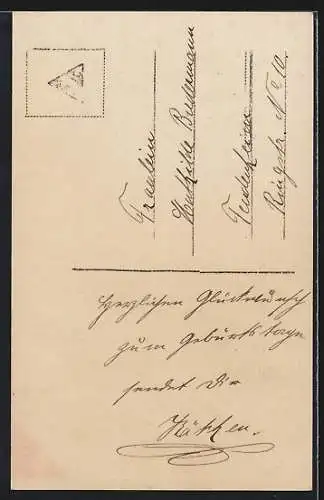 Fräulein
Mathilde Beckmann
Ringstr. No 10.
Herzlichen Glückwunsch
zum Geburtstage
sendet Dir
Käthchen.